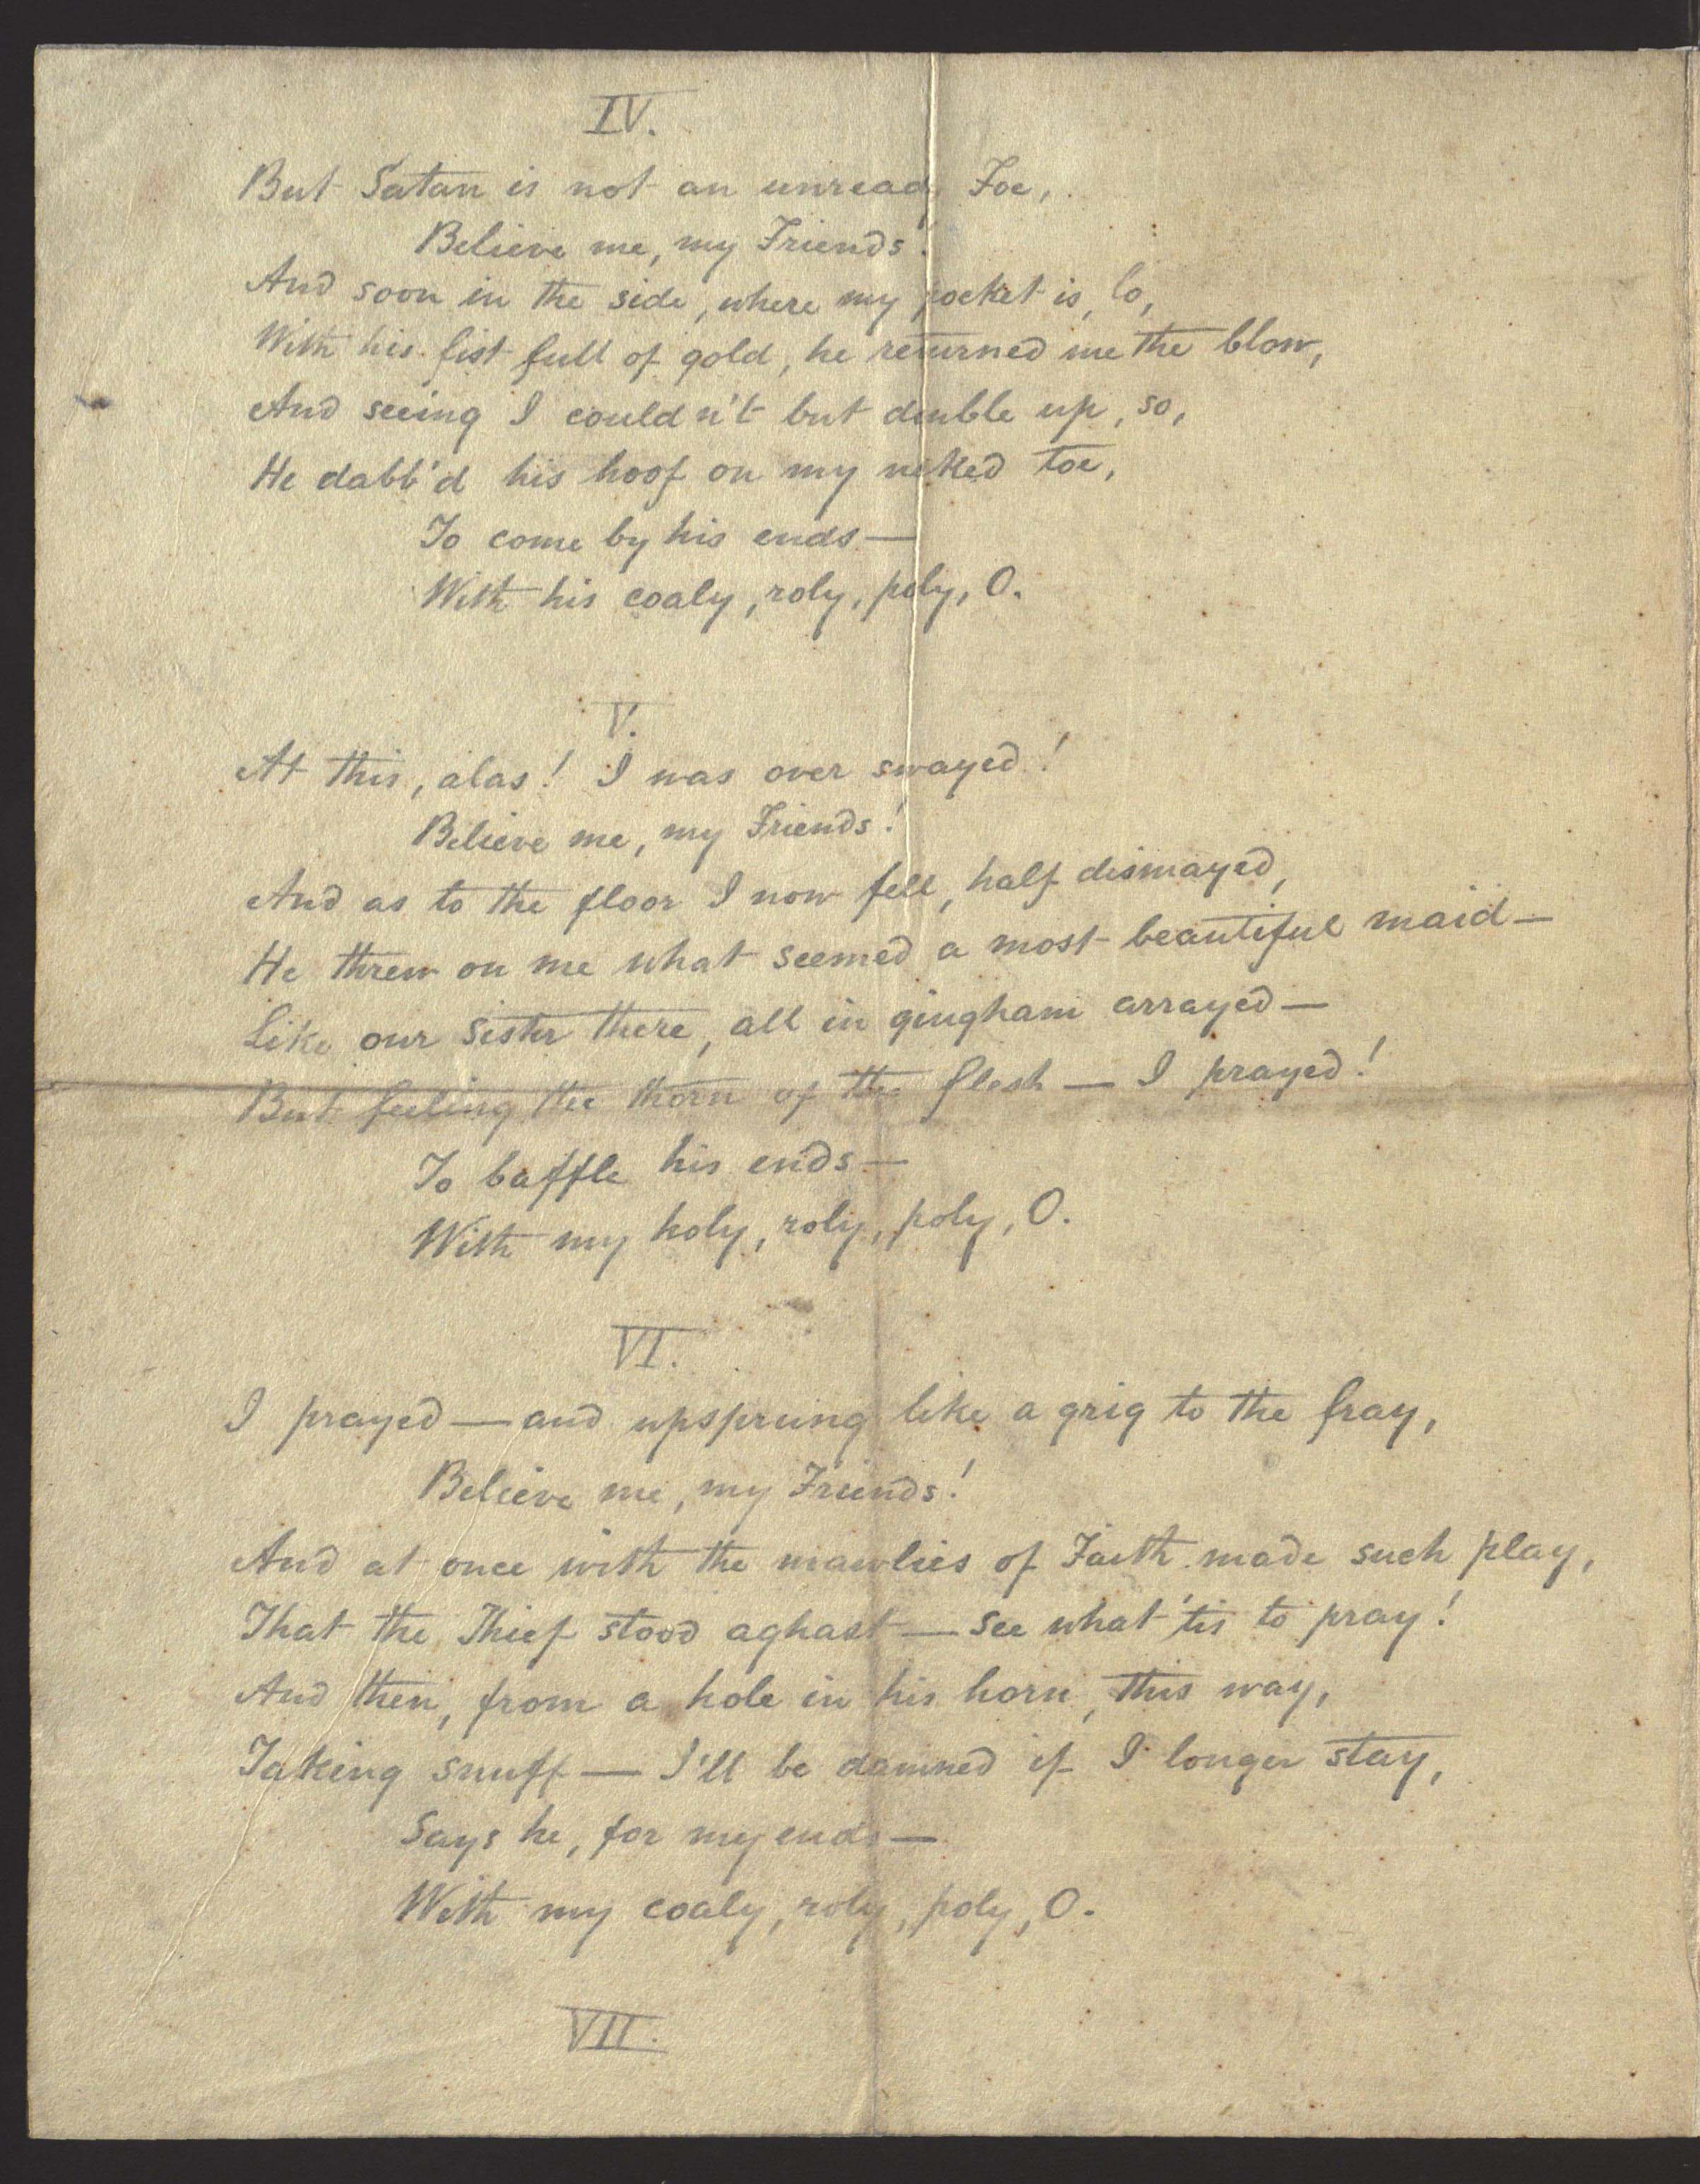 IV.
But Satan is not an unready Foe,
Believe me, my Friends!
And soon in the side, where my pocket is, lo,
With his fist full of gold, he returned me the blow,
And seeing I couldn't but double up, so,
He dabb'd his hoof on my naked toe,
To come by his ends—
With his coaly, roly, poly, O.
V.
At this, alas! I was over swayed!
Believe me, my Friends!
And as to the floor I now fell, half dismayed,
He threw on me what seemed a most beautiful maid—
Like our Sister there, all in gingham arrayed—
But feeling the thorn of the flesh — I prayed!
To baffle his ends—
With my holy, roly, poly, O.
VI.
I prayed — and upsprung like a grig to the fray,
Believe me, my Friends!
And at once with the mawlies of Faith made such play,
That the Thief stood aghast — see what 'tis to pray!
And then, from a hole in his horn, this way,
Taking snuff — I'll be damned if I longer stay,
Says he, for my ends—
With my coaly, roly, poly, O.
VII.